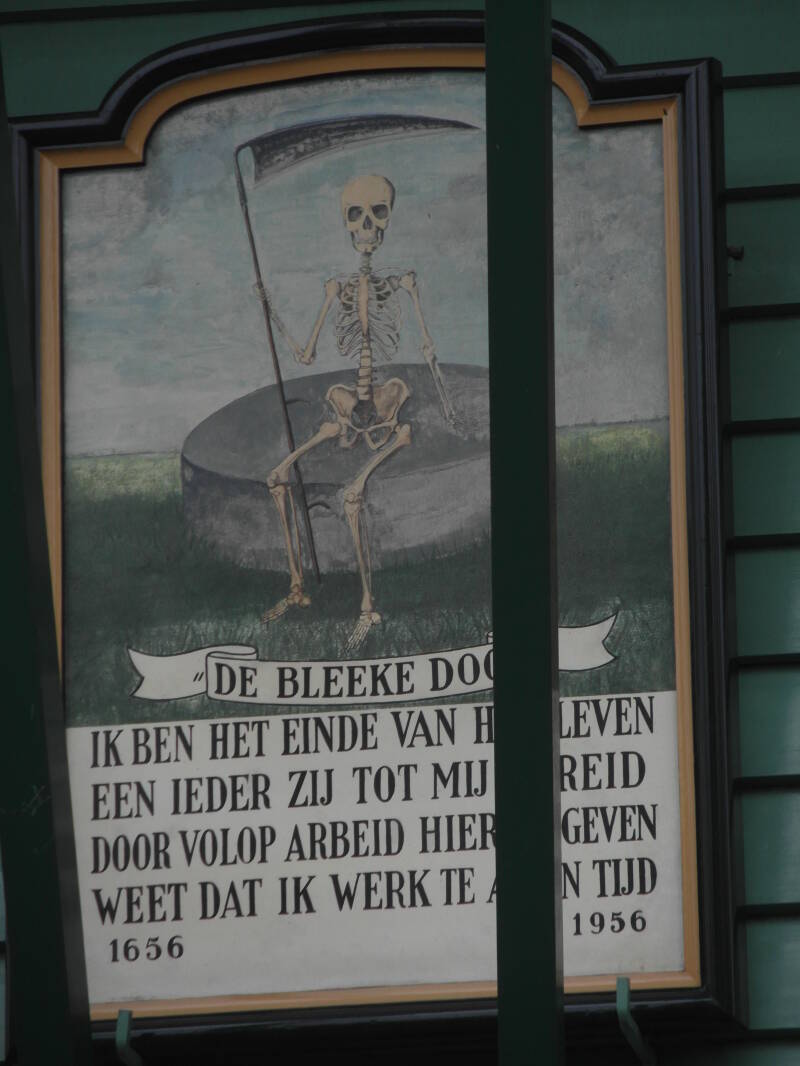 "DE BLEEKE
IK BEN HET EINDE VAN LEVEN
EEN IEDER ZIJ TOT MIJ
DOOR VOLOP ARBEID HIER
WEET DAT IK WERK TE TIJD
1656 1956